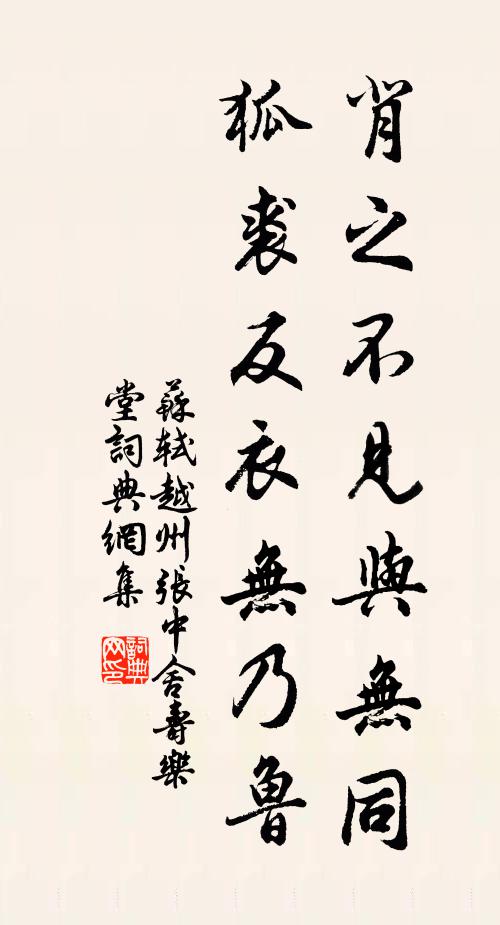 背之不見與無同
狐裘反衣無乃魯
蘇軾越州張中舍壽樂
堂詞典網集
詞典
网印